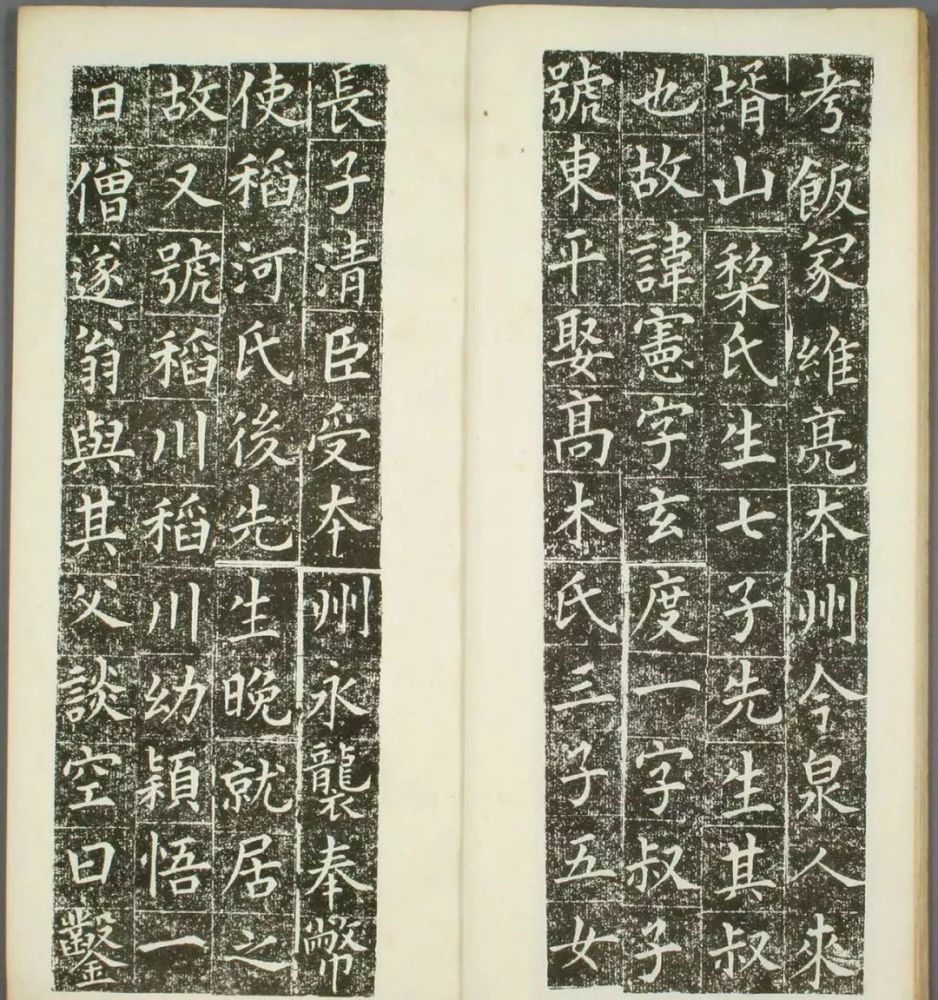 考飯冢維亮本州令泉人來
壻山棃氏生七子先生其叔
也故諱憲字玄度一字叔子
號東平娶髙木氏三子五女
長子清臣受本州永襲奉幣
使稻河氏後先生晚就居之
故又號稻川稻川幼穎悟一
日僧遂翁與其父談空曰鑿